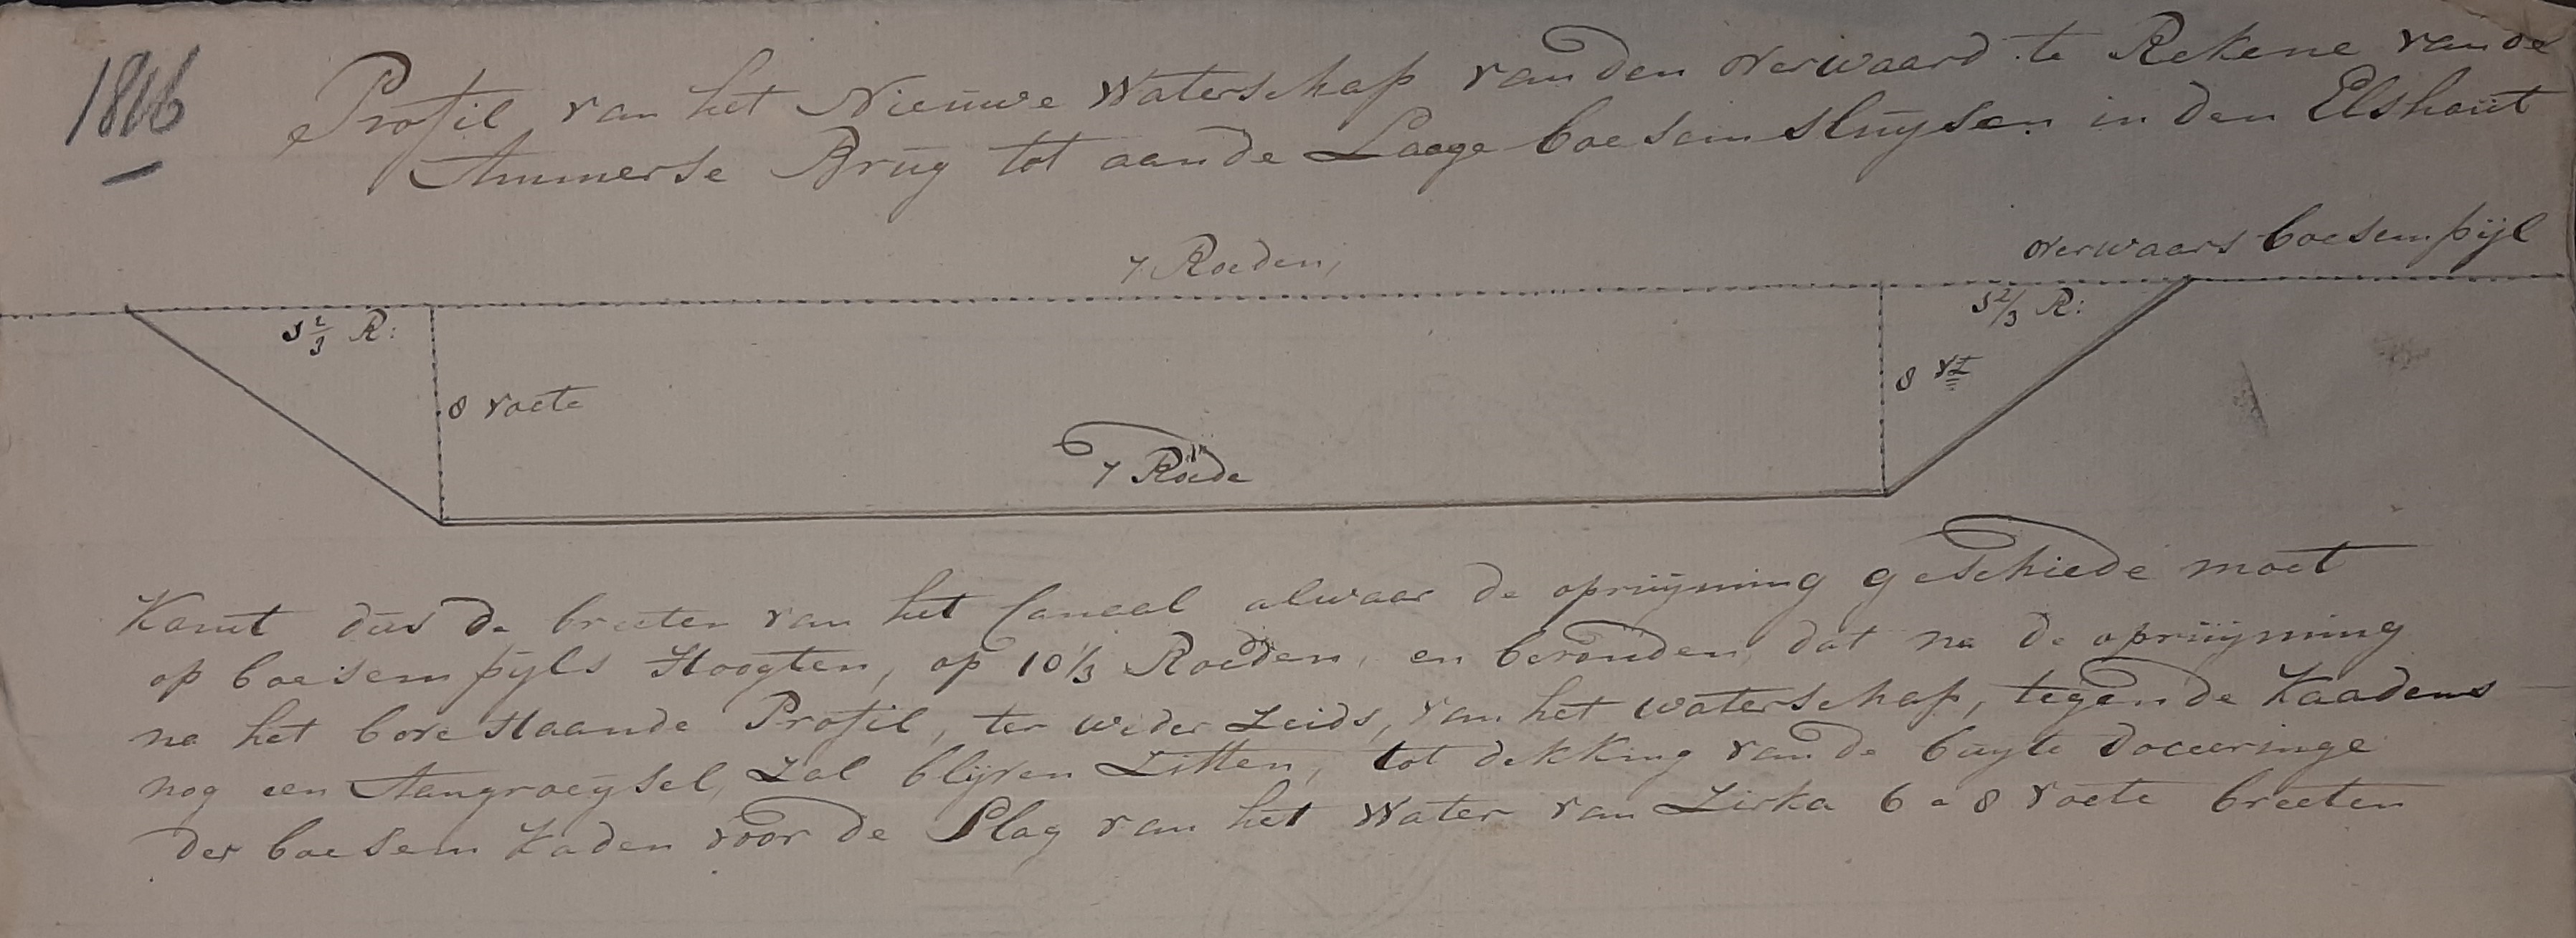 1816
Profil van het Nieuwe Waterschap van den overwaard te Rekene van de
Ammerse Brug tot aan de Laage boesem sluysen in den Elshout
7 Roeden,
overwaars boesem pijl
R:
R:
8 voete
8 vt
7 Roede
Komt dus de breeten van het Canaal alwaar de opruijming geschiede moet
op boesem pijls Hoogten, op 10 1/3 Roeden, en bevonden dat na de opruijming
na het bove staande Profil, ter weder zeids, van het waterschap, tegen de kaadens
nog een Aangroeysel, zal blijven zitten, tot dekking van de buyte doceeringe
der boesem kaden voor de Slag van het Water van Zirka 6 a 8 voete breeten